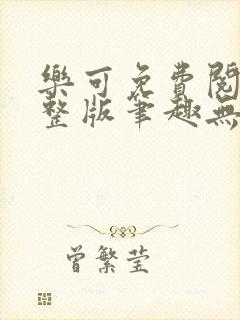 樂可免費閱
整版筆趣無
曾繁莹